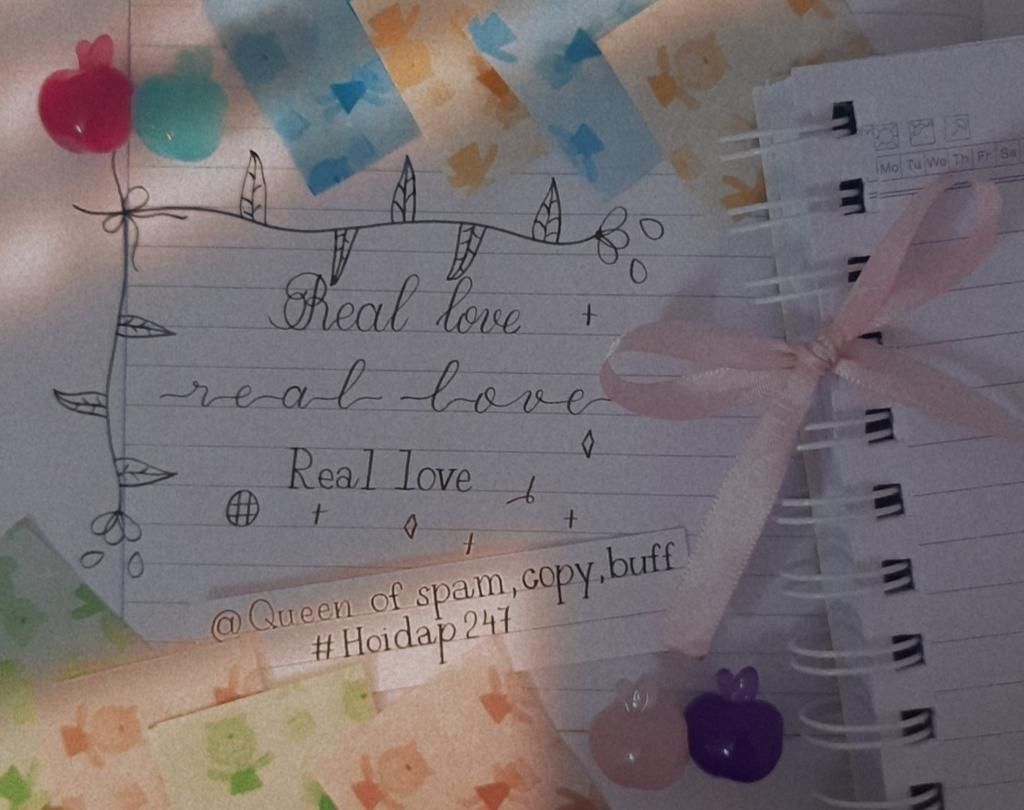 Mo Tu We Th Fr Sa
Real love
real love
Real love
@Queen of spam,copy,buff
#Hoidap247